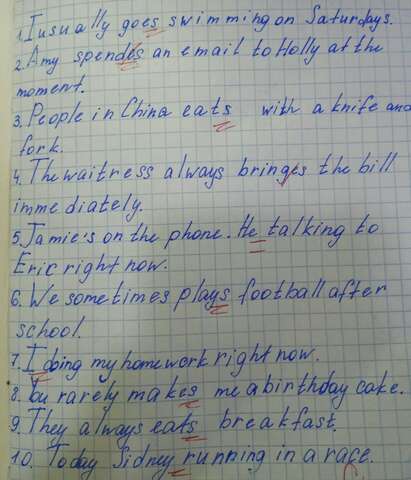 1. I usually goes swimming on Saturdays.
2. Amy spendes an email to Holly at the
moment.
3. People in China eats with a knife and
fork.
4. The waitress always bringes the bill
immediately.
5. Jamie's on the phone. He talking to
Eric right now.
6. We sometimes plays football after
school.
7. I doing my homework right now.
8. You rarely makes me a birthday cake.
9. They always eats breakfast.
10. Today Sidney running in a race.